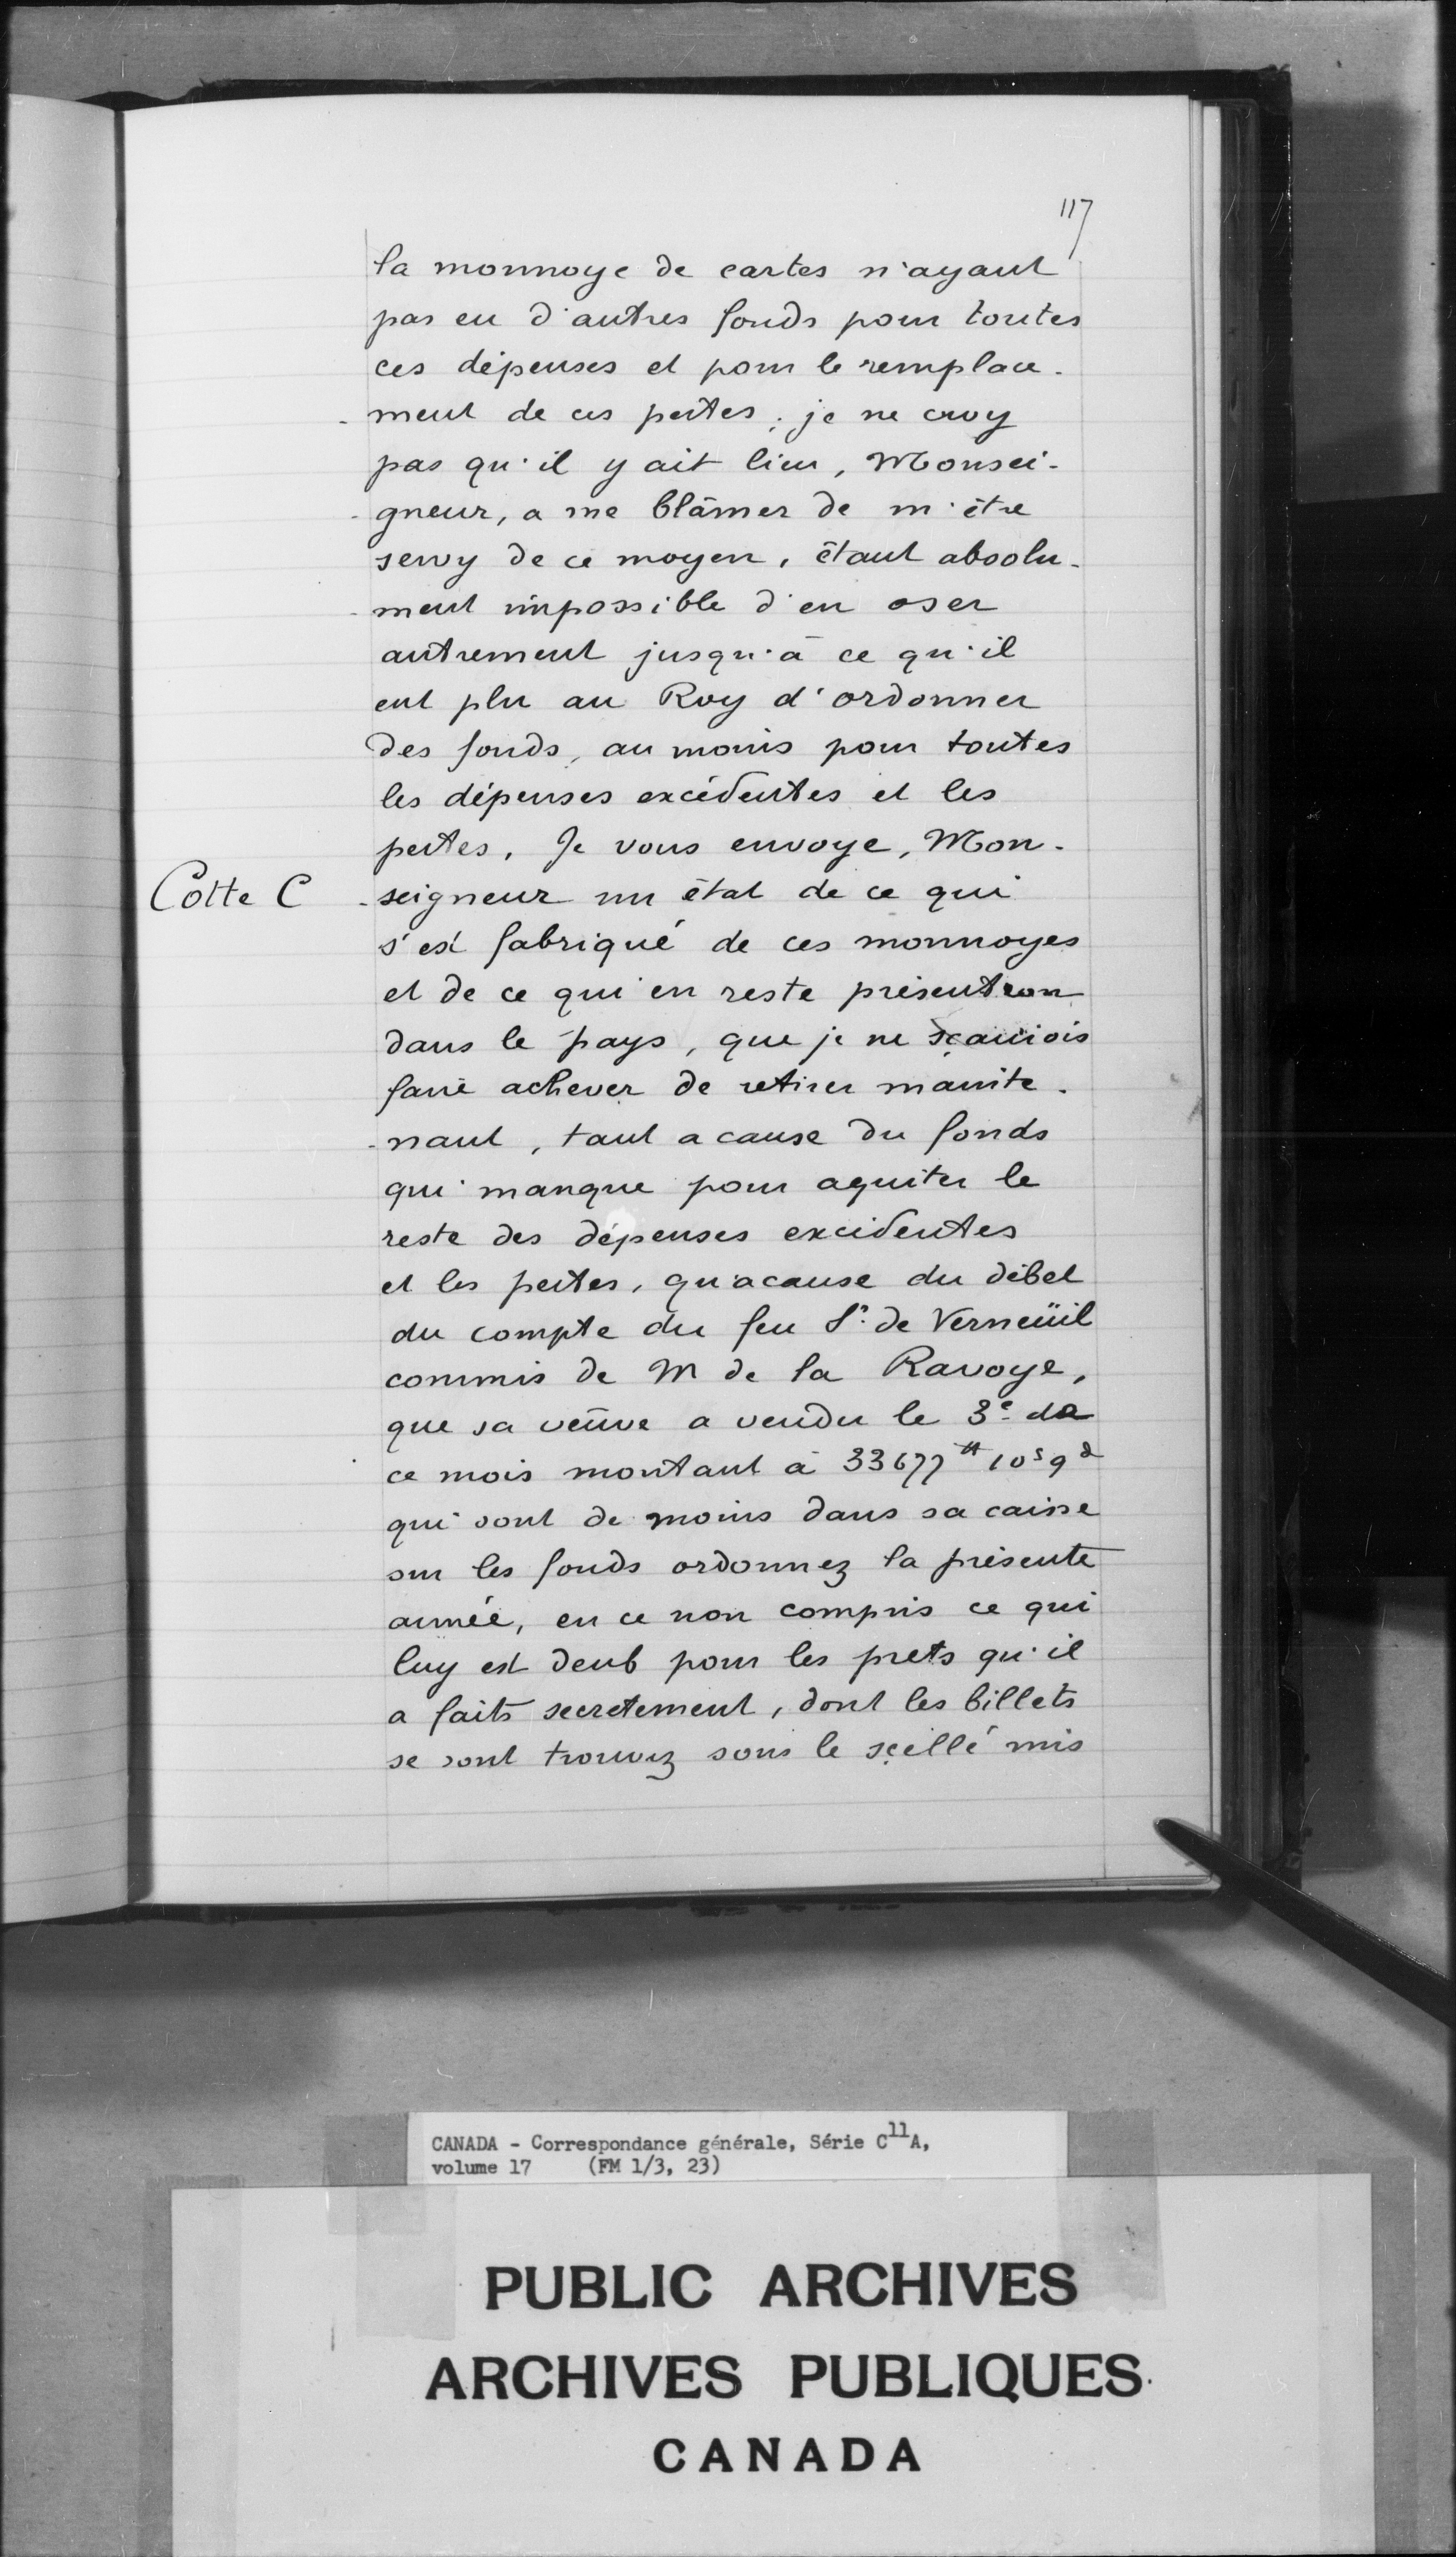 117
la monnoye de cartes n'ayant
pas eu d'autres fonds pour toutes
ces dépenses et pour le remplace-
-ment de ces pertes; je ne croy
pas qu'il y ait lieu, Monsei-
-gneur, a me blâmer de m'être
servy de ce moyen, êtant absolu-
-ment impossible d'en oser
autrement jusqu'à ce qu'il
eut plu au Roy d'ordonner
des fonds, au moins pour toutes
les dépenses excédentes et les
pertes. Je vous envoye, Mon-
Cotte C
-seigneur un êtat de ce qui
s'est fabriqué de ces monnoyes
et de ce qui en reste
dans le pays, que je ne sçaurois
faire achever de retirer mainte-
-nant, tant a cause du fonds
qui manque pour aquiter le
reste des dépenses excédentes
et les pertes, qu'acause du débet
du compte du feu Sr. de Verneüil
commis de M de la Ravoye,
que sa veüve a rendu le 3e. de
ce mois montant à 33677# 10s 9d
qui sont de moins dans sa caisse
sur les fonds ordonnez la présente
année, en ce non compris ce qui
luy est deub pour les prets qu'il
a faits secretement, dont les billets
se sont trouvez sous le sçellé mis
CANADA - Correspondance générale, Série C11A,
volume 17 (FM 1/3, 23)
PUBLIC ARCHIVES
ARCHIVES PUBLIQUES
CANADA